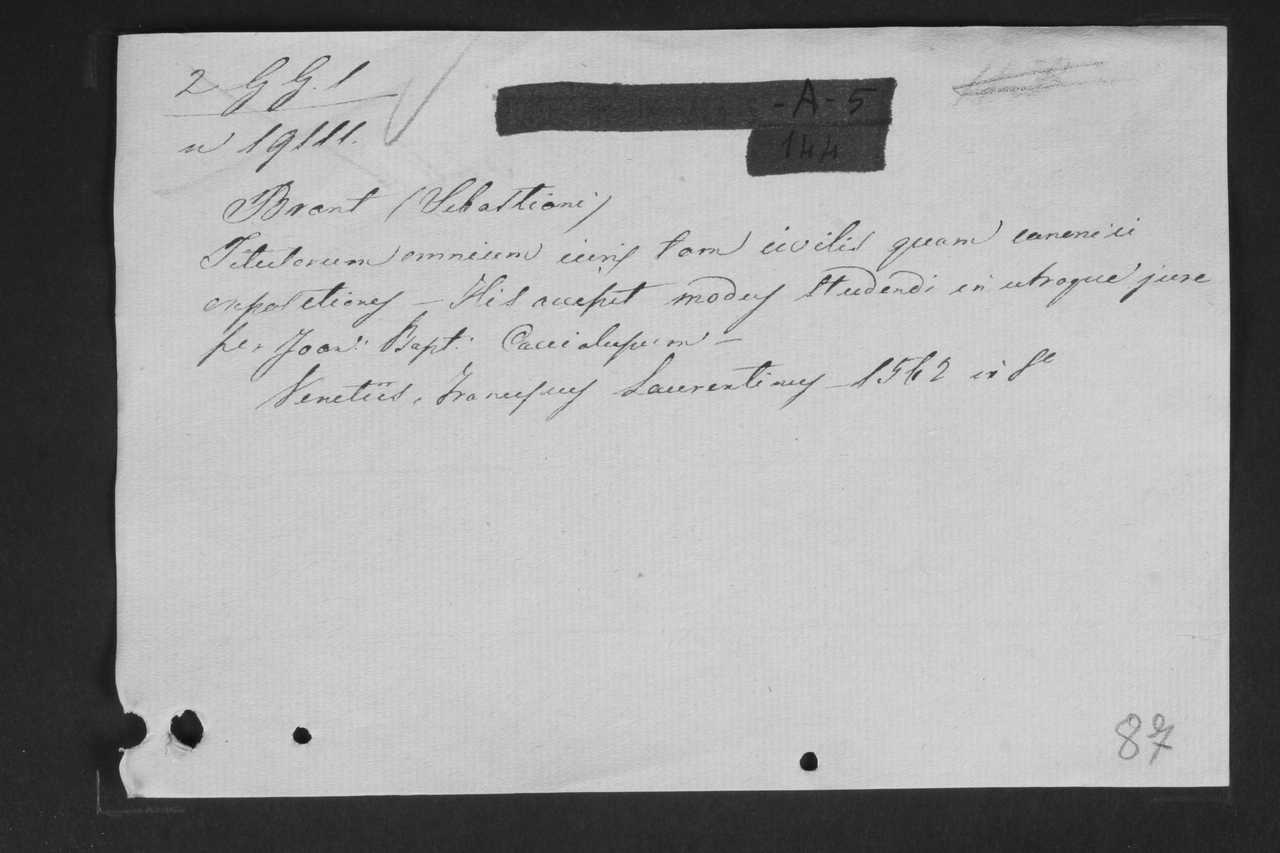 2 G G. 1
-A-5
n 19111.
144
Brant (Sebastiani)
Titulorum omnium iuris tam civilis quam canonici
expositiones – His accessit modus studendi in utroque jure
per Joan: Bapt: Caccialupum –
Venetiis, Franciscus Laurentinus – 1562 in 8º
87